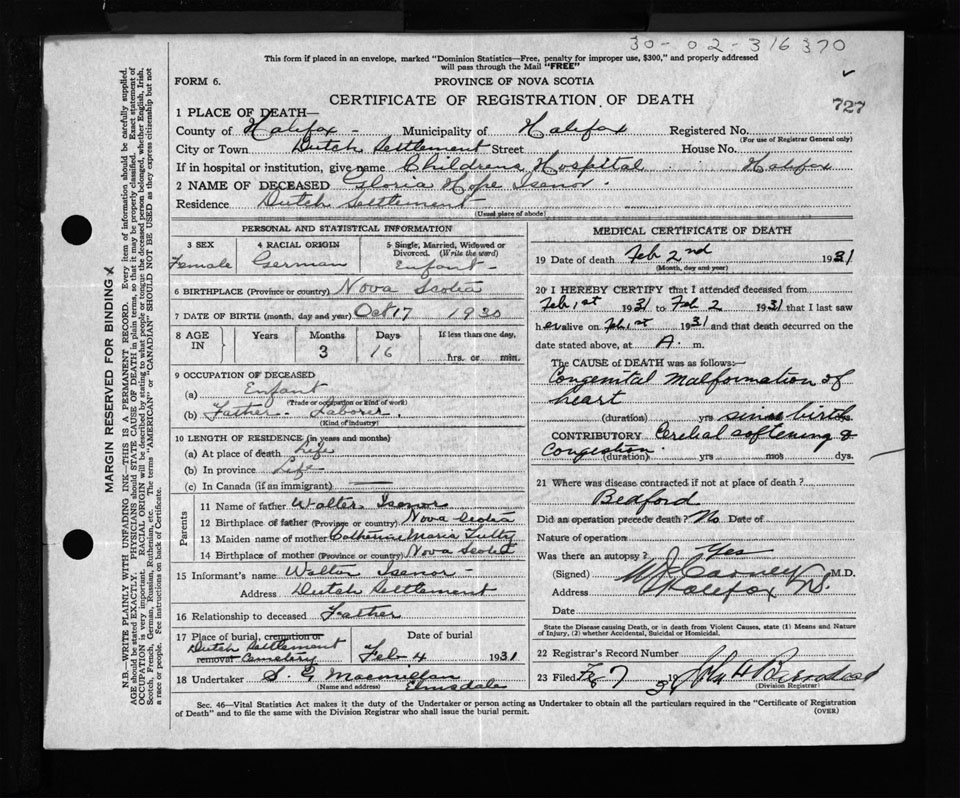 30-02-316370
This form if placed in an envelope, marked "Dominion Statistics—Free, penalty for improper use, $300," and properly addressed
will pass through the Mail "FREE"
FORM 6.
PROVINCE OF NOVA SCOTIA
CERTIFICATE OF REGISTRATION OF DEATH
727
1 PLACE OF DEATH—
County of Halifax - Municipality of Halifax Registered No.
(For use of Registrar General only)
City or Town Dutch Settlement Street House No.
If in hospital or institution, give name Childrens Hospital Halifax
2 NAME OF DECEASED Gloria Hope Isenor.
Residence Dutch Settlement
(Usual place of abode)
PERSONAL AND STATISTICAL INFORMATION
3 SEX
Female
4 RACIAL ORIGIN
German
5 Single, Married, Widowed or
Divorced. (Write the word)
Enfant -
6 BIRTHPLACE (Province or country) Nova Scotia
7 DATE OF BIRTH (month, day and year) Oct 17 1930
8 AGE
IN
Years
Months
3
Days
16
If less than one day,
hrs. or min.
9 OCCUPATION OF DECEASED
(a) Enfant
(Trade or occupation or kind of work)
(b) Father - Laborer.
(Kind of industry)
10 LENGTH OF RESIDENCE (in years and months)
(a) At place of death Life
(b) In province Life -
(c) In Canada (if an immigrant)
Parents
11 Name of father Walter Isenor
12 Birthplace of father (Province or country) Nova Scotia
13 Maiden name of mother Catherine Maria Tully
14 Birthplace of mother (Province or country) Nova Scotia
15 Informant's name Walter Isenor -
Address Dutch Settlement
16 Relationship to deceased Father
17 Place of burial, cremation or
Dutch Settlement
removal Cemetery
Date of burial
Feb. 4 1931
18 Undertaker S. G Macmillan
(Name and address) Elmsdale
MEDICAL CERTIFICATE OF DEATH
19 Date of death Feb 2nd 1931
(Month, day and year)
20 I HEREBY CERTIFY that I attended deceased from
Feb 1st 1931 to Feb 2 1931 that I last saw
her alive on Feb 1st 1931 and that death occurred on
date stated above, at A. m.
The CAUSE of DEATH was as follows:—
Congenital Malformation of
heart
(duration) yrs since birth
CONTRIBUTORY softening &
Congestion.
(duration) yrs mos dys.
21 Where was disease contracted if not at place of death?
Bedford
Did an operation precede death? No Date of
Nature of operation
Was there an autopsy? Yes
(Signed) Carney M.D.
Address Halifax NS.
Date
State the Disease causing Death, or in death from Violent Causes, state (1) Means and Nature
of Injury, (2) whether Accidental, Suicidal or Homicidal.
22 Registrar's Record Number
23 Filed Feb 7 19 31 John H
(Division Registrar)
Sec. 46—Vital Statistics Act makes it the duty of the Undertaker or person acting as Undertaker to obtain all the particulars required in the "Certificate of Registration
of Death" and to file the same with the Division Registrar who shall issue the burial permit.
(OVER)
MARGIN RESERVED FOR BINDING
N.B.—WRITE PLAINLY WITH UNFADING INK—THIS IS A PERMANENT RECORD. Every item of information should be carefully supplied.
AGE should be stated EXACTLY. PHYSICIANS should STATE CAUSE OF DEATH in plain terms, so that it may be properly classified. Exact statement of
OCCUPATION is very important. RACIAL ORIGIN will be described by stating to what people or tongue the deceased person belonged, whether English, Irish,
Scotch, French, German, Russian, Ruthenian, etc. The terms "AMERICAN" or "CANADIAN" SHOULD NOT BE USED as they express citizenship but not
a race or people. Fee instructions on back of Certificate.